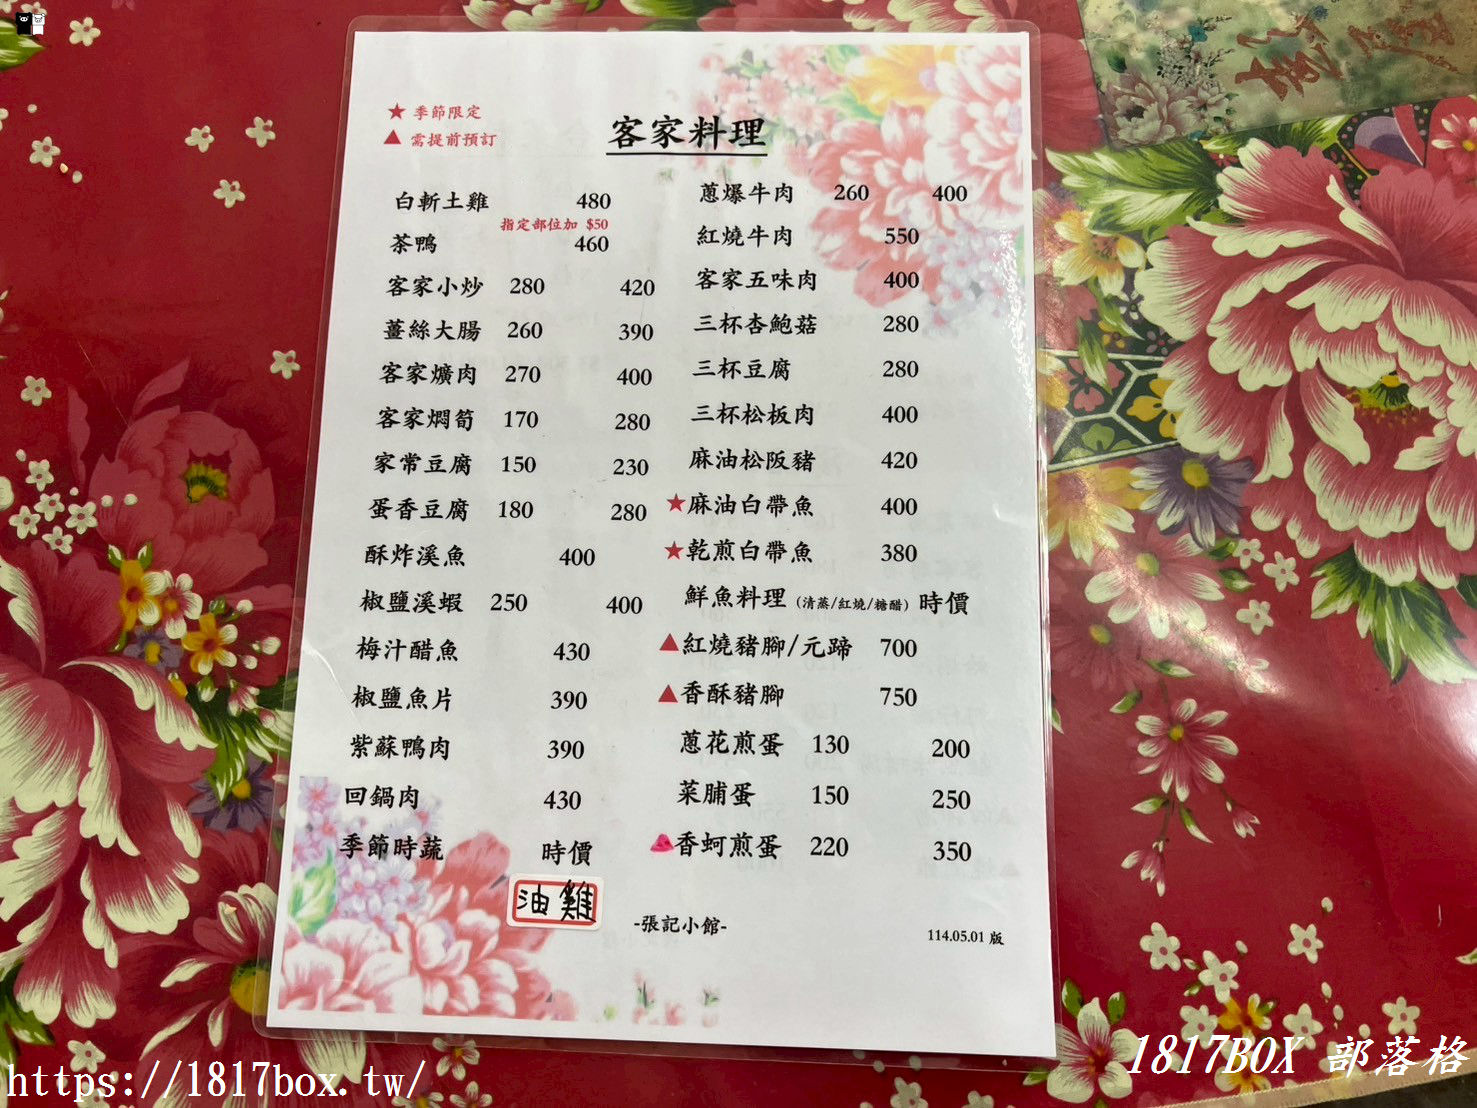 ★ 季節限定
▲ 需提前預訂
客家料理
白斬土雞 480
指定部位加 $50
茶鴨 460
客家小炒 280 420
薑絲大腸 260 390
客家爌肉 270 400
客家燜筍 170 280
家常豆腐 150 230
蛋香豆腐 180 280
酥炸溪魚 400
椒鹽溪蝦 250 400
梅汁醋魚 430
椒鹽魚片 390
紫蘇鴨肉 390
回鍋肉 430
季節時蔬 時價
油雞
蔥爆牛肉 260 400
紅燒牛肉 550
客家五味肉 400
三杯杏鮑菇 280
三杯豆腐 280
三杯松板肉 400
麻油松阪豬 420
★麻油白帶魚 400
★乾煎白帶魚 380
鮮魚料理 (清蒸/紅燒/糖醋) 時價
▲紅燒豬腳/元蹄 700
▲香酥豬腳 750
蔥花煎蛋 130 200
菜脯蛋 150 250
香蚵煎蛋 220 350
-張記小館-
114.05.01 版
https://1817box.tw/
1817BOX 部落格